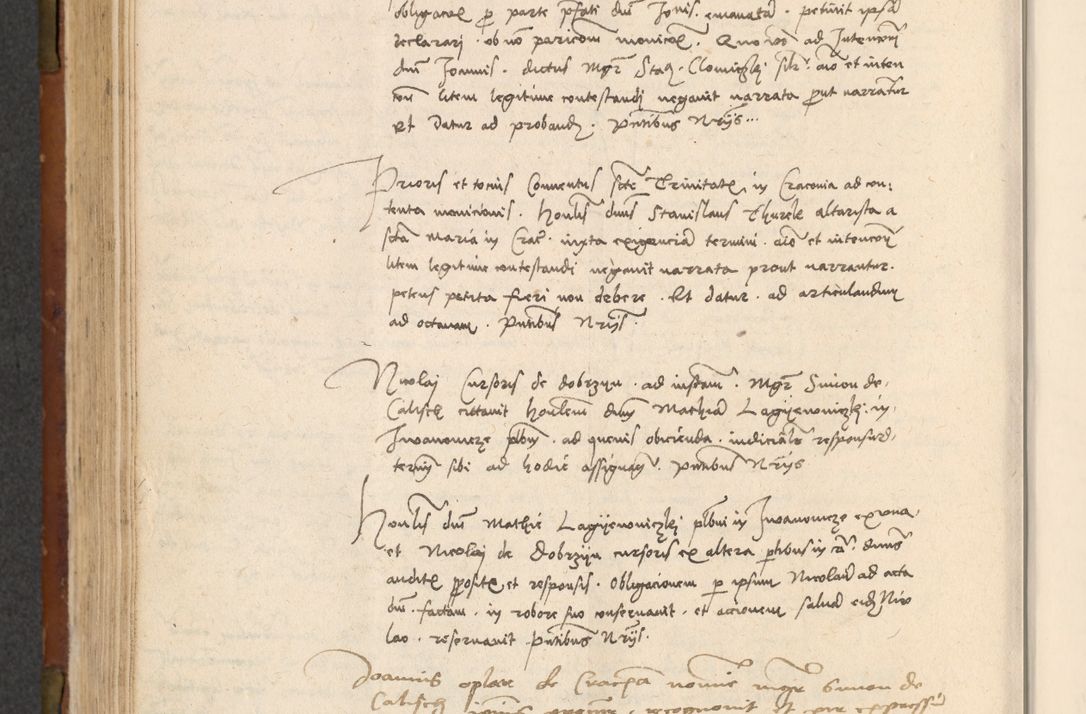 obligacōē p parte pfati dni Joñis emanatā . petiuit ipsā
declarari . ob nō paricōm monicōe . Quo vō ad Intencoēm
dni Joannis . dictus Mgr Stañ . Clowiczki silr aīo et inten
con litem legitime contestandi negauit narrata put narratur
et Datur ad proband . Pntibus Nrijs
Prioris et tocius Conuentus scte Trinitatis in Craconia ad con:
tenta monicionis . Honlis dnus Stanislaus Thurek altarista a
scta Maria in Crac . iuxta exigencia termini . aīo et intencoī
litem legitime contestandi negauit narrata prout narrantur .
petens petita fieri non debere . Et datur . ad articulandum
ad octauam . Pntibus Nrijs .
Nicolaj Cursoris de dobrzyn . ad instam . Mgri Simon de .
Calisch cittauit honlem dnm Mathia Lagijewniczkj in
Iwanowicze plbm . ad queuis obicienda . iudicialr responsurū
termin sibi ad hodie assignam . pntibus Nrijs
Honlis dni Mathie Lagijewniczkj plbni in Iwanowicze ex vna .
et Nicolaj de Dobrzyn cursoris ex altera ptibus in cā . dnus
auditis ppositis et responsis . Obligacionem p ipsum Nicolau ad acta
dni . factam . in robore suo conseruauit . et accionem saluā eidē Nico
lao . reseruauit Pntibus Nrijs .
Joannis de nomine mgri Simon de
Calisch recognouit et